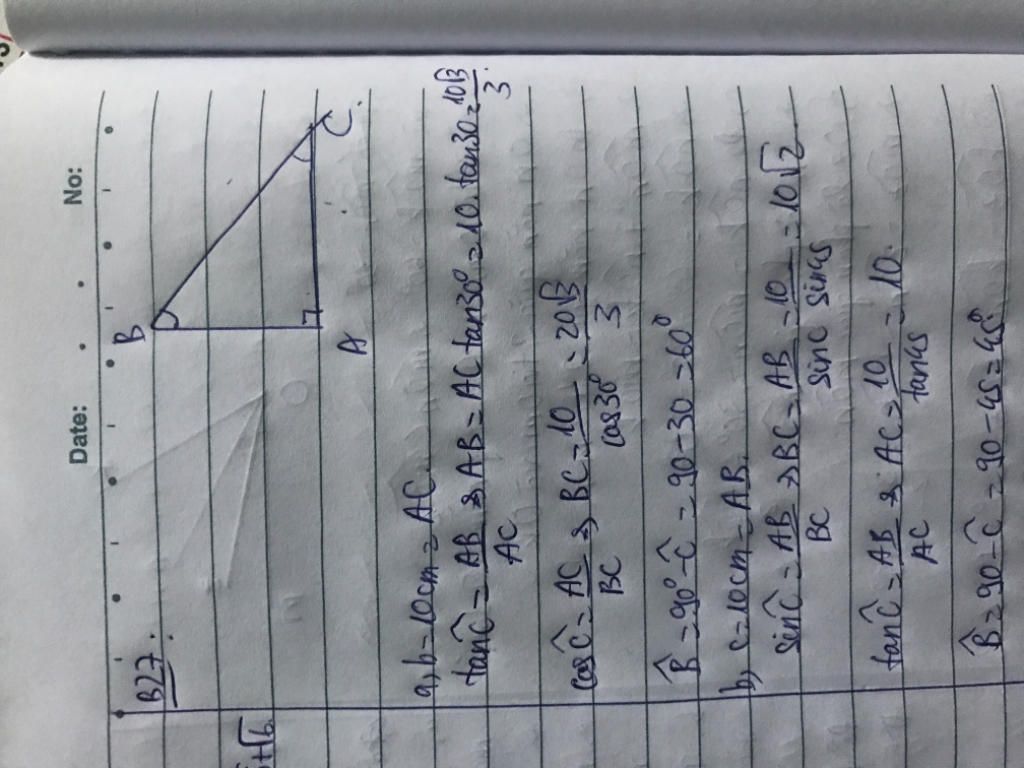 No:
Date:
B27:
B
A
C
a, b = 10cm = AC.
tanĈ = AB/AC => AB = AC tan30° = 10. tan30 = 10√3/3.
cosĈ = AC/BC => BC = 10/cos30° = 20√3/3
B̂ = 90° - Ĉ = 90 - 30 = 60°
b, c = 10cm = AB.
sinĈ = AB/BC => BC = AB/sinC = 10/sin45 = 10√2
tanĈ = AB/AC => AC = 10/tan45 = 10.
B̂ = 90 - Ĉ = 90 - 45 = 45°